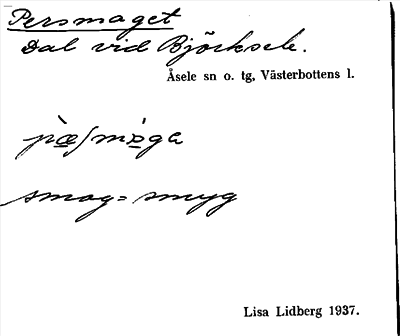 Persmaget
Dal vid Björksele.
Åsele sn o. tg, Västerbottens l.
smag = smyg
Lisa Lidberg 1937.